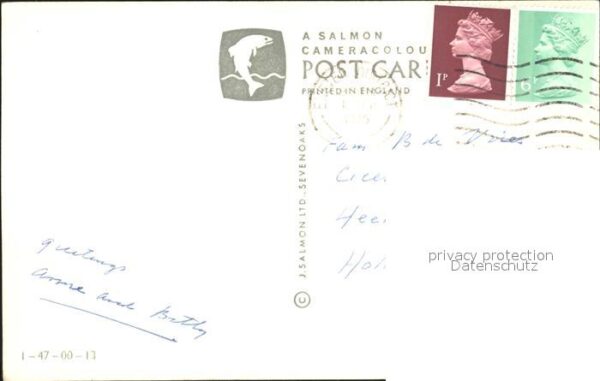 A SALMON
CAMERACOLOU
POST CAR
PRINTED IN ENGLAND
1P
6
Fam B de Vries
privacy protection
Datenschutz
J. SALMON LTD., SEVENOAKS ©
greetings
Anne and Betty
1-47-00-13